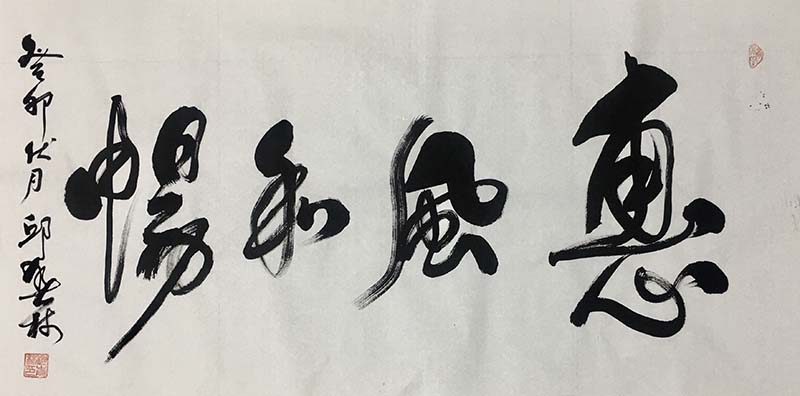 惠風和暢
癸卯伏月邱